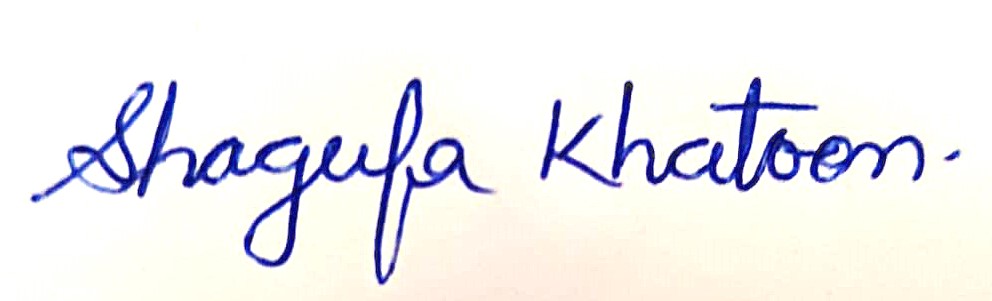 Shagufa Khatoon.